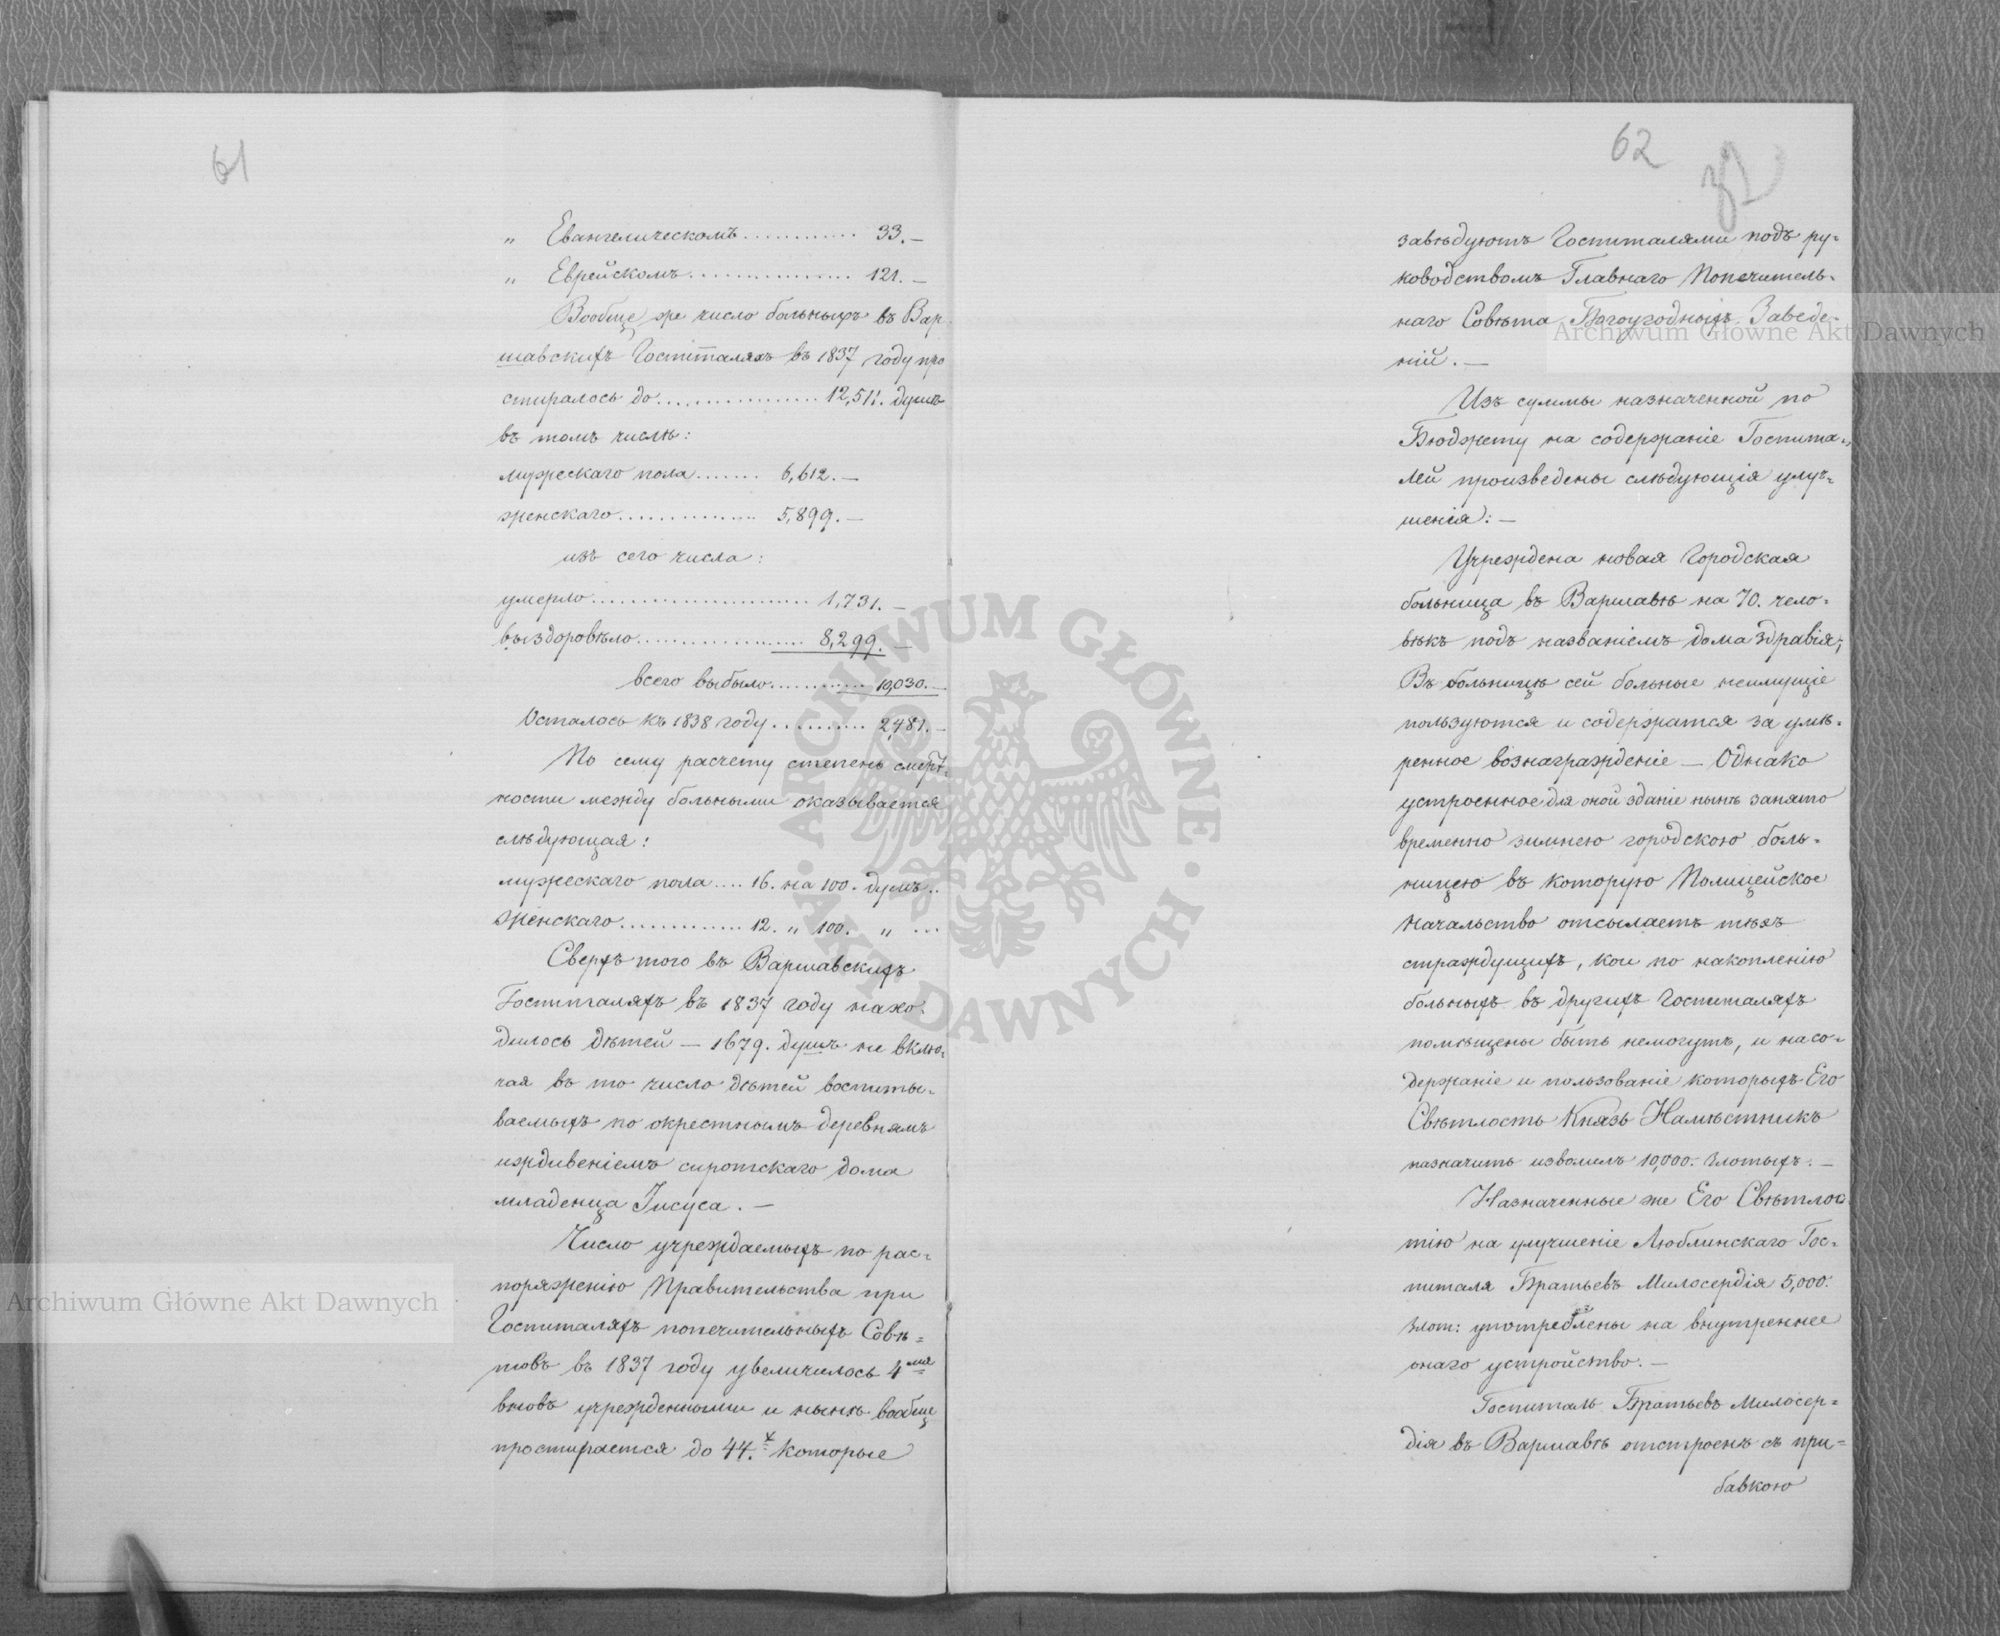 61
„ Евангелическомъ............ 33.—
„ Еврейскомъ................ 121.—
Вообще же число больныхъ въ Вар
шавскихъ Госпиталяхъ въ 1837 году про
стиралось до................. 12,511. душъ
въ томъ числѣ:
мужескаго пола....... 6,612.—
женскаго............... 5,899.—
изъ сего числа:
умерло....................... 1,731.—
выздоровѣло.................. 8,299.—
всего выбыло............ 10,030.—
Осталось къ 1838 году.......... 2,481.—
По сему расчету степень смерт-
ности между больными оказывается
слѣдующая:
мужескаго пола.... 16. на 100. душъ..
женскаго............. 12. „ 100. „ ...
Сверхъ того въ Варшавскихъ
Госпиталяхъ въ 1837 году нахо-
дилось дѣтей — 1679. душъ не вклю-
чая въ то число дѣтей воспиты-
ваемыхъ по окрестнымъ деревнямъ
иждивеніемъ сиротскаго дома
младенца Іисуса.—
Число учреждаемыхъ по рас-
поряженію Правительства при
Госпиталяхъ попечительныхъ Совѣ=
товъ въ 1837 году увеличилось 4мя
вновь учрежденными и нынѣ вообще
простирается до 44.х которые
62
32
завѣдуютъ Госпиталями подъ ру-
ководствомъ Главнаго Попечитель-
наго Совѣта Богоугодныхъ Заведе-
ній.—
Изъ суммы назначенной по
Бюджету на содержаніе Госпита-
лей произведены слѣдующія улуч-
шенія:—
Учреждена новая Городская
больница въ Варшавѣ на 70. чело-
вѣкъ подъ названіемъ дома здравія;
Въ больницѣ сей больные неимущіе
пользуются и содержатся за умѣ-
ренное вознагражденіе — Однако
устроенное для оной зданіе нынѣ занято
временно зимнею городскою боль-
ницею въ которую Полицейское
начальство отсылаетъ тѣхъ
страждущихъ, кои по накопленію
больныхъ въ другихъ Госпиталяхъ
помѣщены быть немогутъ, и на со-
держаніе и пользованіе которыхъ Его
Свѣтлость Князь Намѣстникъ
назначить изволилъ 10,000. Злотыхъ.—
Назначенные же Его Свѣтлос
тію на улучшеніе Люблинскаго Гос-
питаля Братьевъ Милосердія 5,000.
Злот: употреблены на внутреннее
онаго устройство.—
Госпиталь Братьевъ Милосер=
дія въ Варшавѣ отстроенъ съ при=
бавкою
Archiwum Główne Akt Dawnych
Archiwum Główne Akt Dawnych
ARCHIWUM GŁÓWNE · AKT DAWNYCH ·